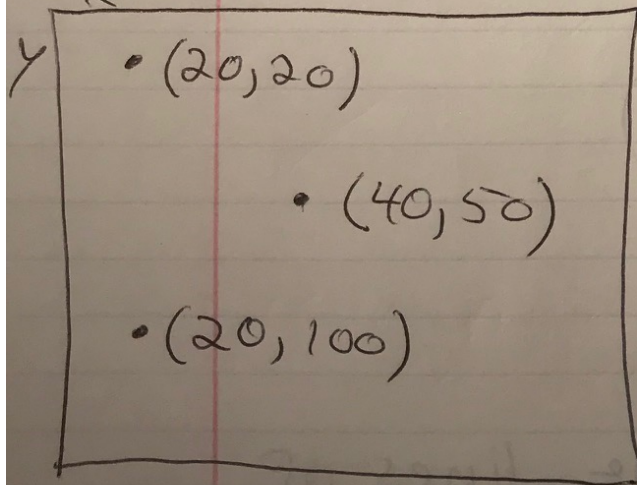 y
(20,20)
(40,50)
(20,100)